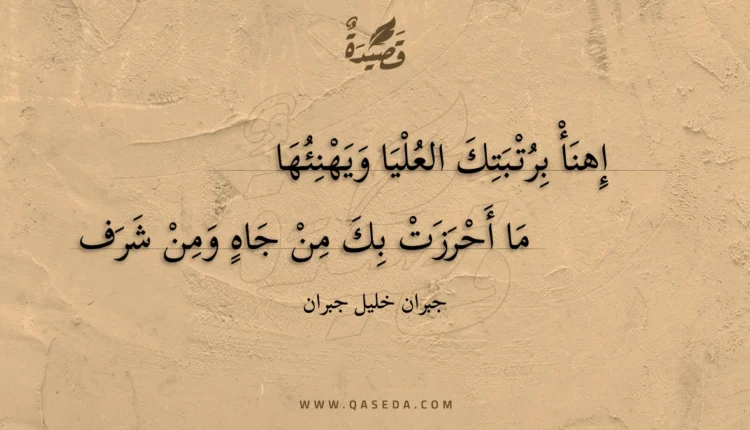 قَصِيْدَةٌ
إِهنَأْ بِرُتْبَتِكَ العُلْيَا وَيَهْنِئُهَا
مَا أَحْرَزَتْ بِكَ مِنْ جَاهٍ وَمِنْ شَرَف
جبران خليل جبران
WWW.QASEDA.COM